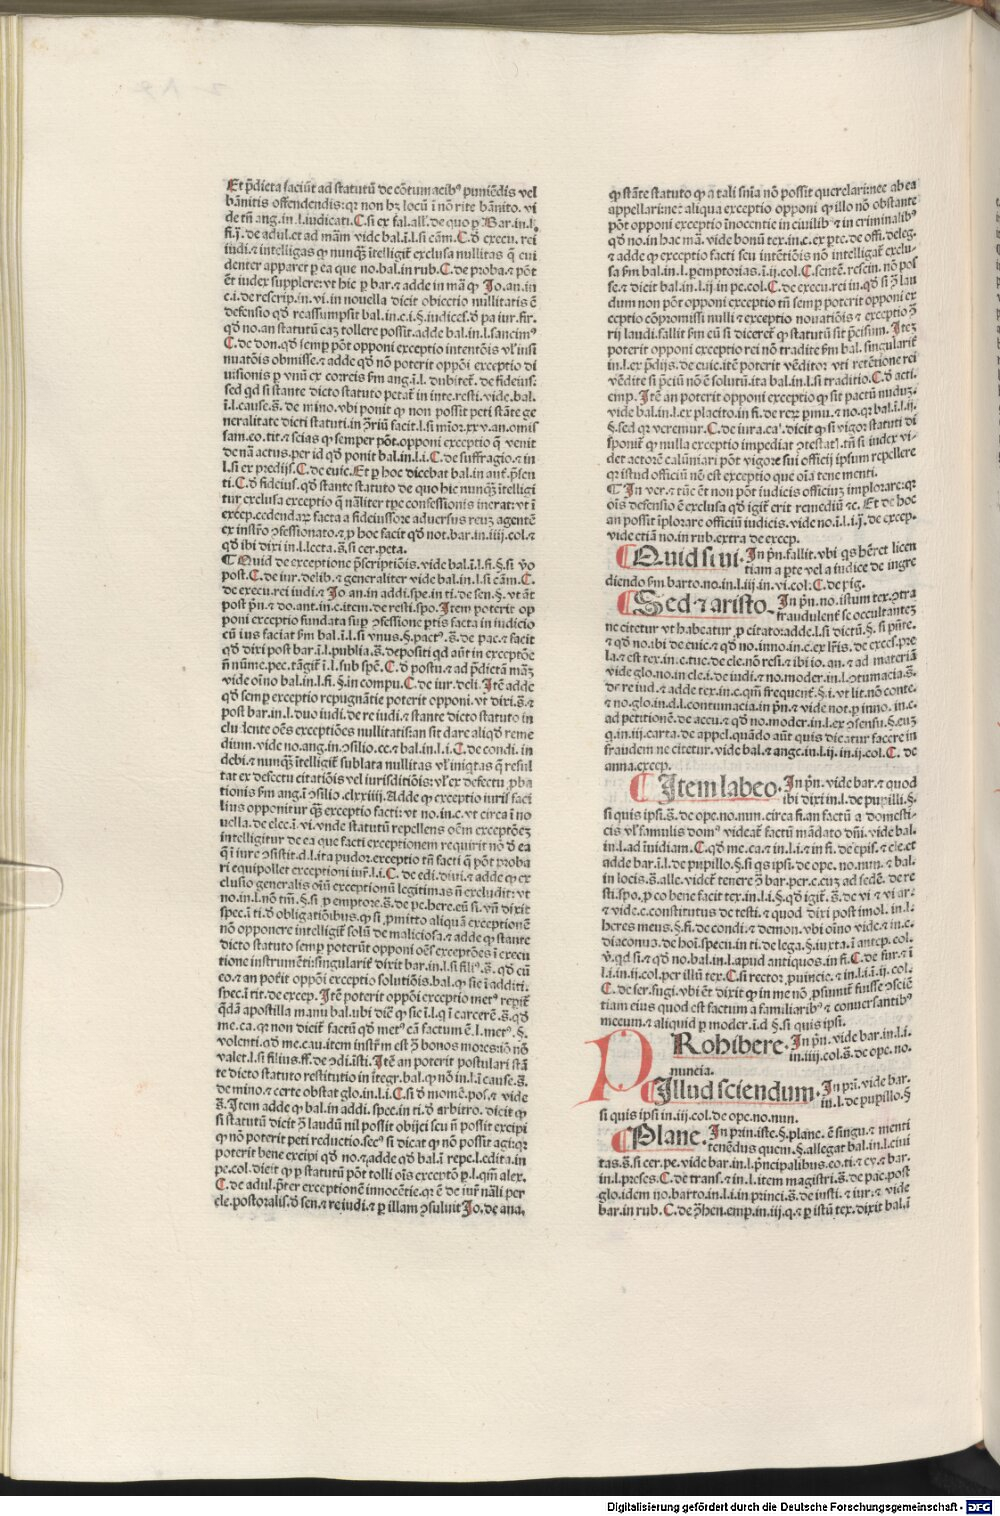 Et p̄dicta faciūt ad statutū de cōtumacibꝰ puniēdis vel
bānitis offendendis: qꝛ non hꝫ locū ī nō rite bānito. vi
de tñ ang. in. l. iudicati. C. si ex fal. all. de quo ꝑ Bar. in. l.
fi. ij. de adul. et ad mām vide bal. ī. l. si cām. C. ō execu. rei
iudi. ⁊ intelligas ꝙ nunqꝫ ītelligit̄ exclusa nullitas q̄ eui
denter apparet ꝑ ea que no. bal. in rub. C. de proba. ⁊ pōt
ēt iudex supplere: vt hic ꝑ bar. ⁊ adde in mā ꝙ Jo. an. in
c. i. de rescrip. in. vi. in nouella dicit obiectio nullitatis ē
defensio qd̄ reassumpsit bal. in c. i. §. iudices. ō pa iur. fir.
qd̄ no. an statutū eaꝫ tollere possit. adde bal. in. l. sancimꝰ
C. de don. qd̄ semꝑ pōt opponi exceptio intentōis vl̓ insi
nuatōis obmisse. ⁊ adde qd̄ nō poterit oppōi exceptio di
uisionis ꝑ vnū ex correis ẜm ang. ī. l. dubitet̄. de fideiuẜ.
sed qd si stante dicto statuto petat̄ in inte. resti. vide. bal.
ī. l. cause. s̄. de mino. vbi ponit ꝙ non possit peti stāte ge
neralitate dicti statuti. in ↄ̄riū facit. l. si mīor. xxv. an. omis
sam. co. tit. ⁊ scias ꝙ semper pōt. opponi exceptio q̄ venit
de nā actus. per id qd̄ ponit bal. in. l. i. C. de suffragio. ⁊ in
l. si ex predijs. C. de euic. Et ꝑ hoc dicebat bal. in aut. p̄sen
ti. C. ō fideius. qd̄ stante statuto de quo hic nunqꝫ ītelligi
tur exclusa exceptio q̄ nāliter tpe confessionis inerat: vt ī
excep. cedendaꝝ facta a fideiussore aduersus reuꝫ agentē
ex instr̄o ↄfessionato. ⁊ ꝓ hoc facit qd̄ not. bar. in iiij. col. ⁊
qd̄ ibi dixi in. l. lecta. s̄. si cer. peta.
¶ Quid de exceptione p̄scriptiōis. vide bal. ī. l. fi. §. si v̓o
post. C. de iur. delib. ⁊ generaliter vide bal. in. l. si cām. C.
de execu. rei iudi. ⁊ Jo an. in addi. spe. in ti. de sen. §. vt āt
post p̄n. ⁊ do. ant. in c. item. de resti. spo. Item poterit op
poni exceptio fundata suꝑ ↄfessione ꝑtis facta in iudicio
cū ius faciat ẜm bal. ī. l. si vnus. §. pactꝰ. s̄. de pac. ⁊ facit
qd̄ dixi post bar. ī. l. publia. s̄. depositi qd aūt in exceptōe
ñ nūme. pec. tāgit̄ ī. l. sub spē. C. ō postu. ⁊ ad p̄dictā māꝫ
vide oīno bal. in. l. fi. §. in compu. C. de iur. deli. Itē adde
qd̄ semꝑ exceptio repugnātie poterit opponi. vt dixi. s̄. ⁊
post bar. in. l. duo iudi. de re iudi. ⁊ stante dicto statuto in
cludente oēs exceptiōes nullitatis an sit dare aliqd̄ reme
dium. vide no. ang. in ↄsilio. cc. ⁊ bal. in. l. i. C. de condi. in
debi. ⁊ nunqꝫ ītelligit̄ sublata nullitas vl̓ iniqtas q̄ resul
tat ex defectu citatiōis vel iurisditiōis: vl̓ ex defectu ꝓba
tionis ẜm ang. ī ↄsilio. clxxiiij. Adde ꝙ exceptio iuris faci
lius opponitur qꝫ exceptio facti: vt no. in. c. vt circa ī no
uella. de elec. ī. vi. vnde statutū repellens oēm exceptōeꝫ
intelligitur de ea que facti exceptionem requirit nō ō ea
q̄ ī iure ↄsistit. d. l. ita pudor. exceptio tñ facti q̄ pōt proba
ri equipollet exceptioni iur̄. l. i. C. de edi. diui. ⁊ adde ꝙ ex
clusio generalis oīuꝫ exceptionū legitimas ñ excludit: vt
no. in. l. nō tm̄. §. si ꝓ emptore. s̄. de pe. here. eū si. vñ dixit
spec. ī ti. ō obligatiōibus. ꝙ si ꝓmitto aliquā exceptionē
nō opponere intelligit̄ solū de maliciosa. ⁊ adde ꝙ stante
dicto statuto semꝑ poterūt opponi oēs exceptōes ī execu
tione instrumēti: singularit̄ dixit bar. in. l. si filiꝰ. s̄. qd̄ cū
eo. ⁊ an poterit oppōi exceptio solutiōis. bal. ꝙ sic ī additi.
spec. ī tit. de excep. Itē poterit oppōi exceptio metꝰ repit̄
qdā apostilla manu bal. vbi dic̄ ꝙ sic ī. l. q̄ ī carcerē. s̄. qd̄
me. ca. qꝛ non dicit̄ factū qd̄ metꝰ cā factum ē. l. metꝰ. §.
volenti. qd̄ me. cau. item instr̄m est ↄ̄ bonos mores: iō nō
valet. l. si filius. ff. de ↄdi. īsti. Itē an poterit postulari stā
te dicto statuto restitutio in ītegr. bal. ꝙ nō in. l. ī cause. s̄.
de mino. ⁊ certe obstat glo. in. l. i. C. si ō momē. pos. ⁊ vide
s̄. Item adde ꝙ bal. in addi. spec. in ti. ō arbitro. dicit ꝙ
si statutū dicit ↄ̄ laudū nil possit obijci seu ñ possit excipi
ꝙ nō poterit peti reductio. secꝰ si dicat ꝙ nō possit agi: qꝛ
poterit bene excipi qd̄ no. ⁊ adde qd̄ bal. ī repe. l. edita. in
pe. col. dicit ꝙ ꝑ statutū pōt tolli oīs exceptō ꝑ. l. qm̄ alex.
C. de adul. p̄ter exceptionē innocētie. qꝛ ē de iur̄ nāli per
cle. pastoralis. ō sen. ⁊ re iudi. ⁊ ꝑ illam ↄsuluit Jo. de ana.
ꝙ stāte statuto ꝙ a tali snīa nō possit querelari: nec ab ea
appellari: nec aliqua exceptio opponi ꝙ illo nō obstante
pōt opponi exceptio īnocentie in ciuilibꝰ ⁊ in criminalibꝰ
qd̄ no. in hac mā. vide bonū tex. in c. ex ꝑte. de offi. deleg.
⁊ adde ꝙ exceptio facti seu intētiōis nō intelligat̄ exclu-
sa ẜm bal. in. l. ꝑemptorias. ī. ij. col. C. sentē. rescin. nō pos
se. ⁊ dicit bal. in. l. ij. in pe. col. C. de execu. rei iu. qd̄ si ↄ̄ lau
dum non pōt opponi exceptio tñ semꝑ poterit opponi ex
ceptio cōpromissi nulli ⁊ exceptio nouatiōis ⁊ exceptio ↄ̄
rij laudi. fallit ẜm eū si diceret̄ ꝙ statutū sit p̄cisum. Iteꝫ
poterit opponi exceptio rei nō tradite ẜm bal. singularit̄
in. l. ex p̄dijs. de euic. itē poterit vēditor vti retētione rei
vēdite si p̄ciū nō ē solutū. ita bal. in. l. si traditio. C. ō acti.
emp. Itē an poterit opponi exceptio ꝙ sit pactū nuduꝫ.
vide bal. in. l. ex placito. in fi. de reꝝ ꝑmu. ⁊ no. qꝛ bal. ī. l. ij.
§. sed qꝛ veremur. C. de iura. caꝰ. dicit ꝙ si vigor statuti di
sponit̄ ꝙ nulla exceptio impediat ↄtestat̄. tñ si iudex vi-
det actorē calūniari pōt vigore sui officij ipsum repellere
qꝛ istud officiū nō est exceptio que oīa tene menti.
¶ In ver. ⁊ tūc ēt non pōt iudicis officiuꝫ implorare: qꝛ
oīs defensio ē exclusa qd̄ igit̄ erit remediū ⁊c. Et de hoc
an possit īplorare officiū iudicis. vide no. ī. l. i. ij. de excep.
vide etiā no. in rub. extra de excep.
¶ Quid si tui. In p̄n. fallit. vbi qs hēret licen
tiam a ꝑte vel a iudice de ingre
diendo ẜm barto. no. in. l. iij. in. vi. col. C. de pig.
¶ Sed ⁊ aristo. In p̄n. no. istum tex. ↄtra
fraudulent̄ se occultanteꝫ
ne citetur vt habeatur ꝓ citato: adde. l. si dictū. §. si p̄nte.
⁊ qd̄ no. ibi de euic. ⁊ qd̄ no. inno. in c. ex lr̄is. de exces. pre
la. ⁊ est tex. in c. tue. de cle. nō resi. ⁊ ibi io. an. ⁊ ad materiā
vide glo. no. in cle. i. de iudi. ⁊ no. moder. in. l. ↄtumacia. s̄.
de re iud. ⁊ adde tex. in c. qm̄ frequent̄. §. i. vt lit. nō conte.
⁊ no. glo. in. d. l. contumacia. in p̄n. ⁊ vide not. ꝑ inno. in. c.
ad petitionē. de accu. ⁊ qd̄ no. moder. in. l. ex ↄsensu. §. euꝫ
q. in. iij. carta. de appel. quādo aūt quis dicatur facere in
fraudem ne citetur. vide bal. ⁊ ange. in. l. ij. in. ij. col. C. de
anna. excep.
¶ Item labeo. In p̄n. vide bar. ⁊ quod
ibi dixi in. l. de pupilli. §.
si quis ipsi. s̄. de ope. no. nun. circa fi. an factū a domesti-
cis vl̓ famulis domꝰ videat̄ factū mādato dñi. vide bal.
in. l. ad inuidiam. C. qd̄ me. ca. ⁊ in. l. i. ⁊ in fi. de epis. ⁊ cle. et
adde bar. ī. l. de pupillo. §. si qs ipsi. de ope. no. nun. ⁊ bal.
in locis. s̄. alle. videt̄ tenere ↄ̄ bar. per. c. cuꝫ ad sedē. de re
sti. spo. ꝓ eo bene facit tex. in. l. i. §. qd̄ igit̄. s̄. de vi ⁊ vi ar.
⁊ vide. c. constitutus de testi. ⁊ quod dixi post imol. in. l.
heres meus. §. fi. de condi. ⁊ demon. vbi oīno vide. ⁊ in c.
diaconua. de hoī. specu. in ti. de lega. §. iuxta. ī antep. col.
v̓. qd si. ⁊ qd̄ no. bal. in. l. apud antiquos. in fi. C. de fur. ⁊ ī
l. i. in. ij. col. per illū tex. C. si rector ꝓuincie. ⁊ in. l. i. ī. ij. col.
C. de ser. fugi. vbi ēt dixit ꝙ in me nō ꝓsumit̄ fuisse ↄsciē
tiam eius quod est factum a familiaribꝰ ⁊ conuersantibꝰ
mecum. ⁊ aliquid ꝑ moder. ī. d §. si quis ipsi.
PRohibere. In p̄n. vide bar. in. l. i.
in. iiij. col. s̄. de ope. no.
nuncia.
¶ Illud sciendum. In pri. vide bar.
in. l. de pupillo. §
si quis ipsi in. iij. col. de ope. no. nun.
¶ Plane. In prin. iste. §. plane. ē singu. ⁊ menti
tenēdus quem. §. allegat bal. in. l. ciui
tas. s̄. si cer. pe. vide bar. in. l. p̄ncipalibus. co. ti. ⁊ cy. ⁊ bar.
in. l. preses. C. de trans. ⁊ in. l. item magistri. s̄. de pac. post
glo. idem no. barto. in. l. i. in princi. s̄. de iusti. ⁊ iur. ⁊ vide
bar. in rub. C. de ↄ̄hen. emp. in. iij. q. ⁊ ꝑ istū tex. dixit bal. ī
Digitalisierung gefördert durch die Deutsche Forschungsgemeinschaft - DFG